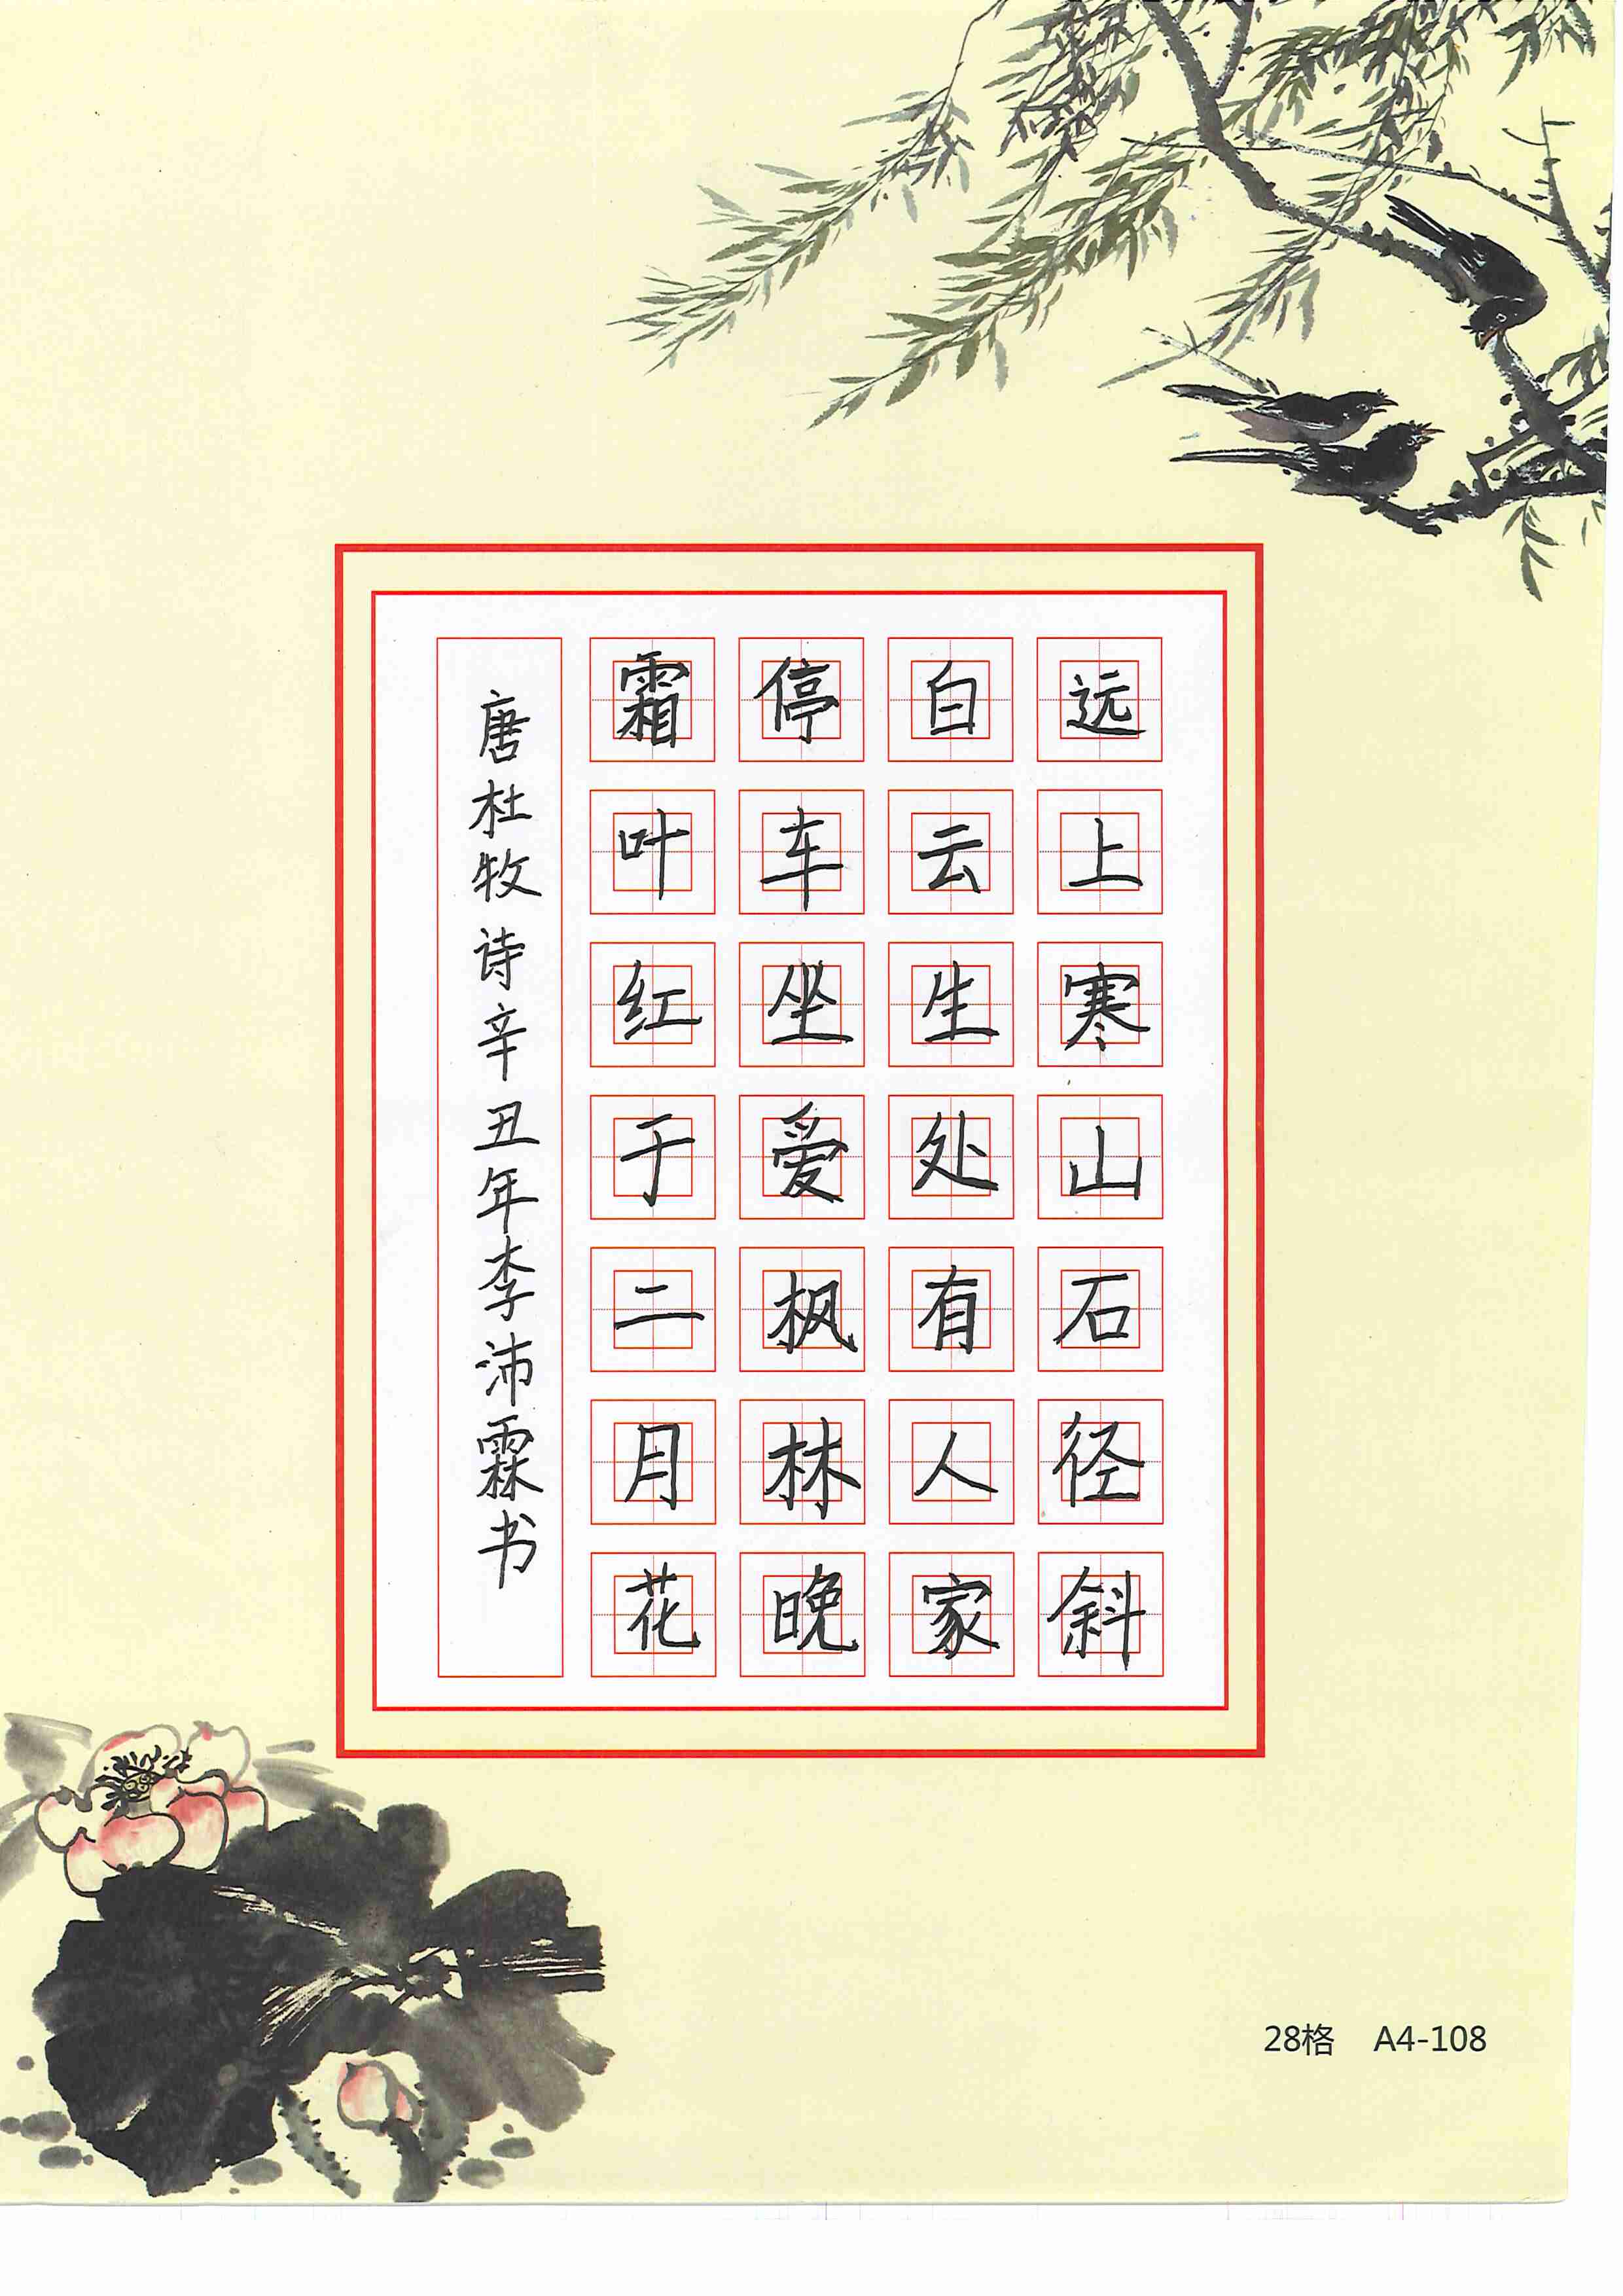 远上寒山石径斜
白云生处有人家
停车坐爱枫林晚
霜叶红于二月花
唐杜牧诗辛丑年李沛霖书
28格 A4-108